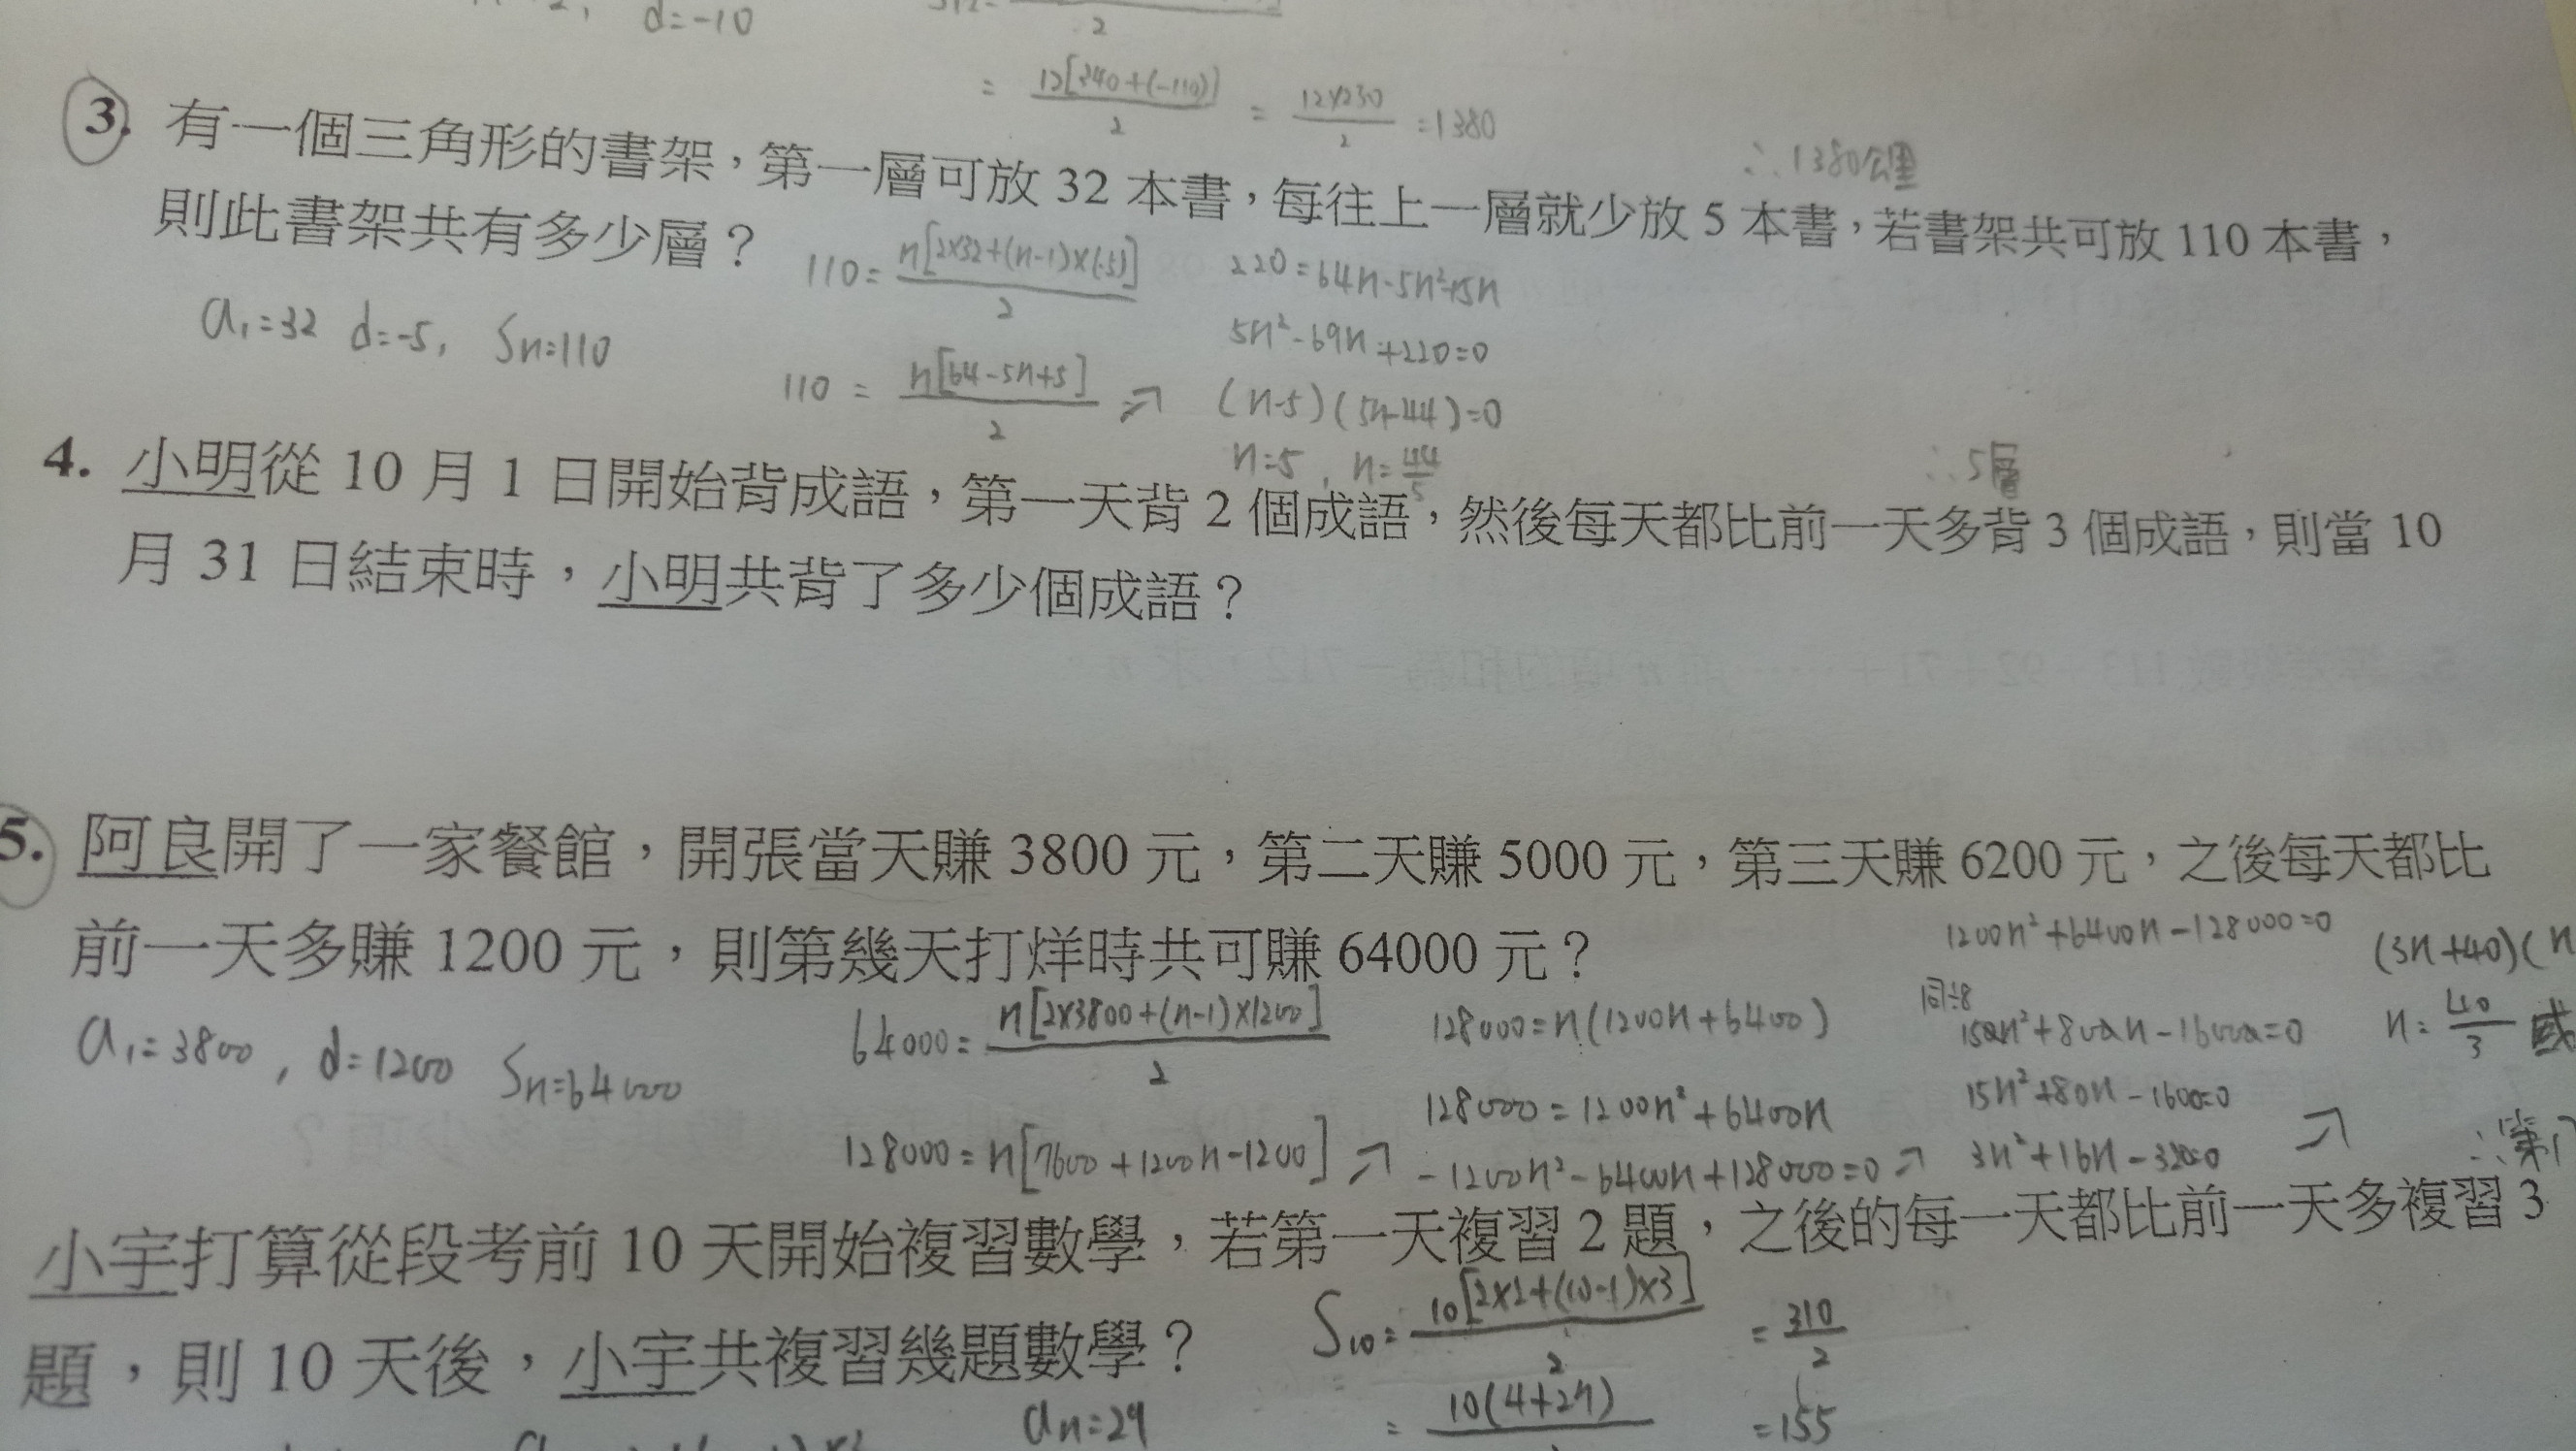 d=-10
2
= 12[340+(-110)]/2 = 12×230/2 =1380
∴1380公里
3. 有一個三角形的書架，第一層可放 32 本書，每往上一層就少放 5 本書，若書架共可放 110 本書，
則此書架共有多少層？
a₁=32 d=-5, Sn=110
110= n[2×32+(n-1)×(-5)]/2
110 = n[64-5n+5]/2 ⇒
220=64n-5n²+5n
5n²-69n+220=0
(n-5)(5n-44)=0
n=5, n=44/5
∴5層
4. 小明從 10 月 1 日開始背成語，第一天背 2 個成語，然後每天都比前一天多背 3 個成語，則當 10
月 31 日結束時，小明共背了多少個成語？
5. 阿良開了一家餐館，開張當天賺 3800 元，第二天賺 5000 元，第三天賺 6200 元，之後每天都比
前一天多賺 1200 元，則第幾天打烊時共可賺 64000 元？
a₁=3800, d=1200 Sn=64000
64000= n[2×3800+(n-1)×1200]/2
128000=n[7600+1200n-1200] ↗
128000=n(1200n+6400)
128000=1200n²+6400n
-1200n²-6400n+128000=0 ↗
1200n²+6400n-128000=0
同÷8
150n²+800n-16000=0
15n²+80n-1600=0
3n²+16n-320=0
(3n+40)(n
n= 40/3 或
∴第
小宇打算從段考前 10 天開始複習數學，若第一天複習 2 題，之後的每一天都比前一天多複習 3
題，則 10 天後，小宇共複習幾題數學？
S₁₀= 10[2×2+(10-1)×3]/2 = 310/2
an=29
= 10(4+27) =155